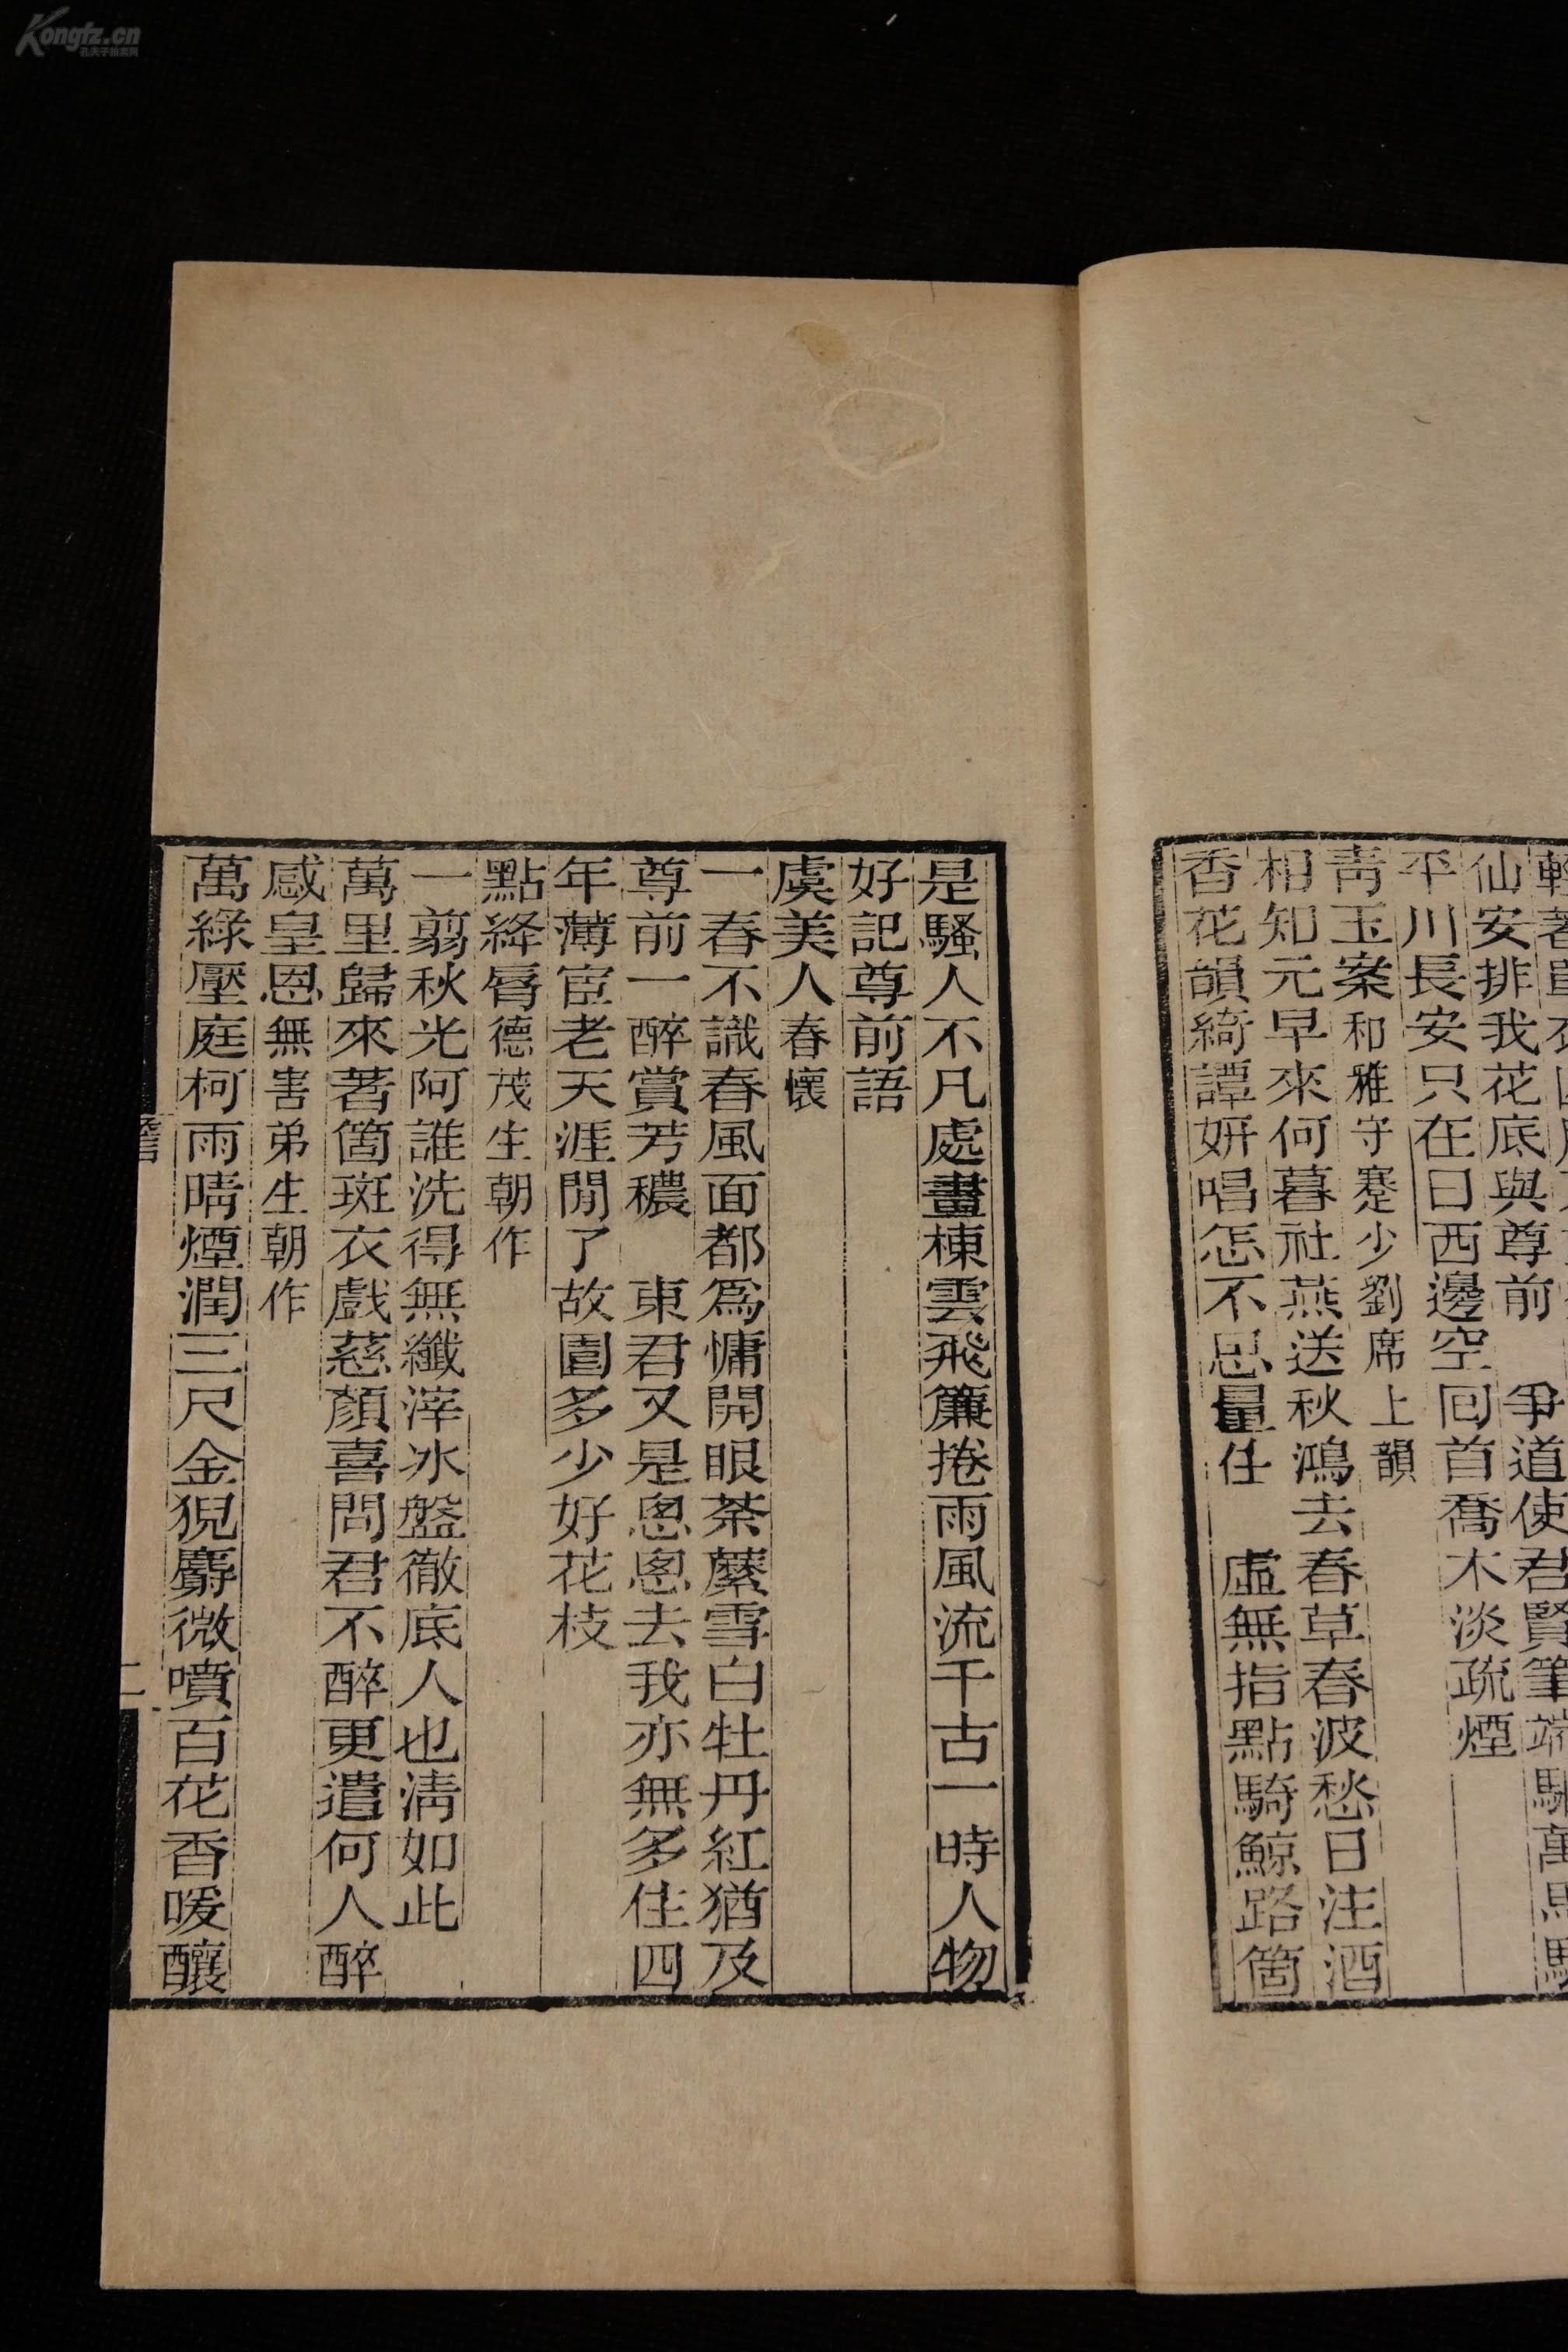 仙安排我花底與尊前　爭道使君賢筆端
平川長安只在日西邊空回首喬木淡疏煙
青玉案和雅守蹇少劉席上韻
相知元早來何暮社燕送秋鴻去春草春波愁日注酒
香花韻綺譚妍唱怎不思量住　虛無指點騎鯨路箇
是騷人不凡處畫棟雲飛簾捲雨風流千古一時人物
好記尊前語
虞美人春懷
一春不識春風面都爲慵開眼荼蘼雪白牡丹紅猶及
尊前一醉賞芳穠　東君又是悤悤去我亦無多住四
年薄宦老天涯閒了故園多少好花枝
點絳脣德茂生朝作
一翦秋光阿誰洗得無纖滓冰盤徹底人也清如此
萬里歸來著箇斑衣戲慈顏喜問君不醉更遣何人醉
感皇恩無害弟生朝作
萬綠壓庭柯雨晴煙潤三尺金猊麝微噴百花香暖釀
二
Kongfz.cn
孔夫子拍卖网